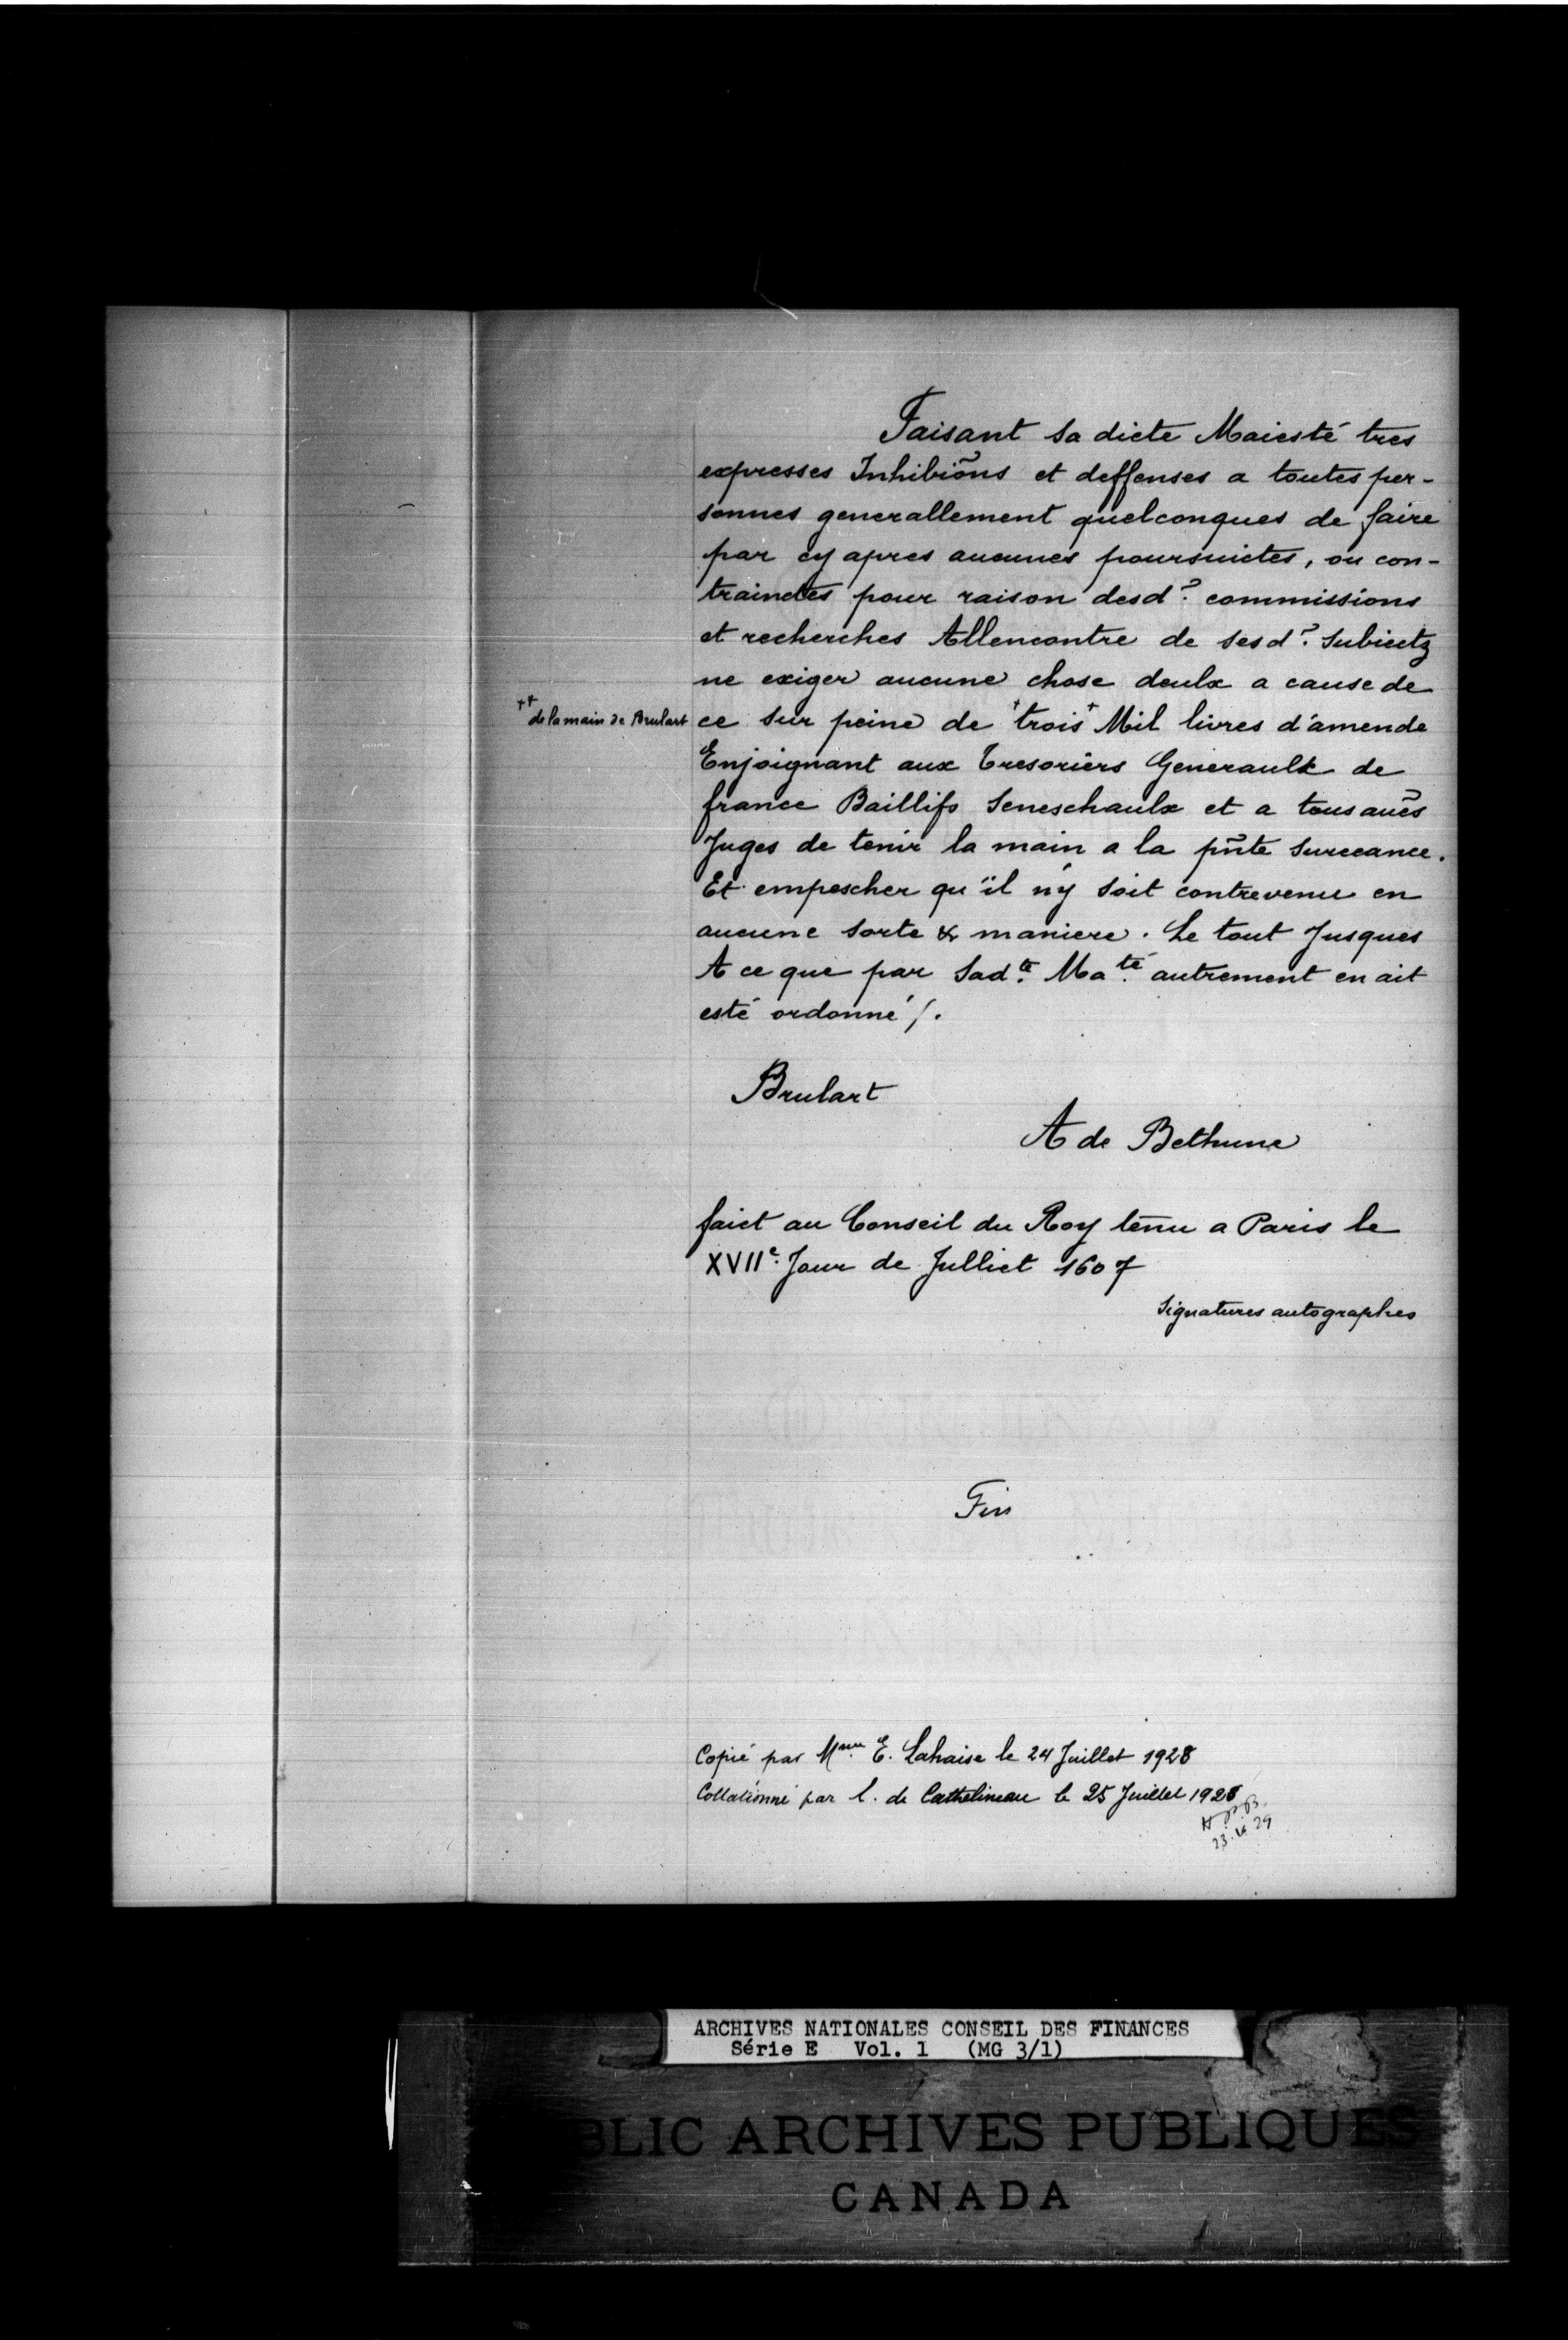 Faisant sa dicte Maiesté tres
expresses Inhibiõns et deffenses a toutes per-
sonnes generallement quelconques de faire
par cy apres aucunes poursuictes, ou con-
trainctes pour raison desd? commissions
et recherches Allencontre de sesd? Subiectz
ne exiger aucune chose deulx a cause de
++ de la main de Brulart
ce sur peine de +trois+ Mil livres d'amende
Enjoignant aux Tresoriers Generaulx de
france Baillifs Seneschaulx et a tous auẽs
Juges de tenir la main a la pñte surceance.
Et empescher qu'il n'y soit contrevenu en
aucune sorte & maniere. Le tout Jusques
A ce que par Sad.te Ma.té autrement en ait
esté ordonné /.
Brulart
A de Bethune
faict au Conseil du Roy tenu a Paris le
XVIIe. Jour de Julliet 1607
Signatures autographes
Fin
Copié par Mme E. Lahaise le 24 Juillet 1928
Collationné par l. de Cathelineau le 25 Juillet 1928
ARCHIVES NATIONALES CONSEIL DES FINANCES
Série E Vol. 1 (MG 3/1)
BLIC ARCHIVES PUBLIQUES
CANADA